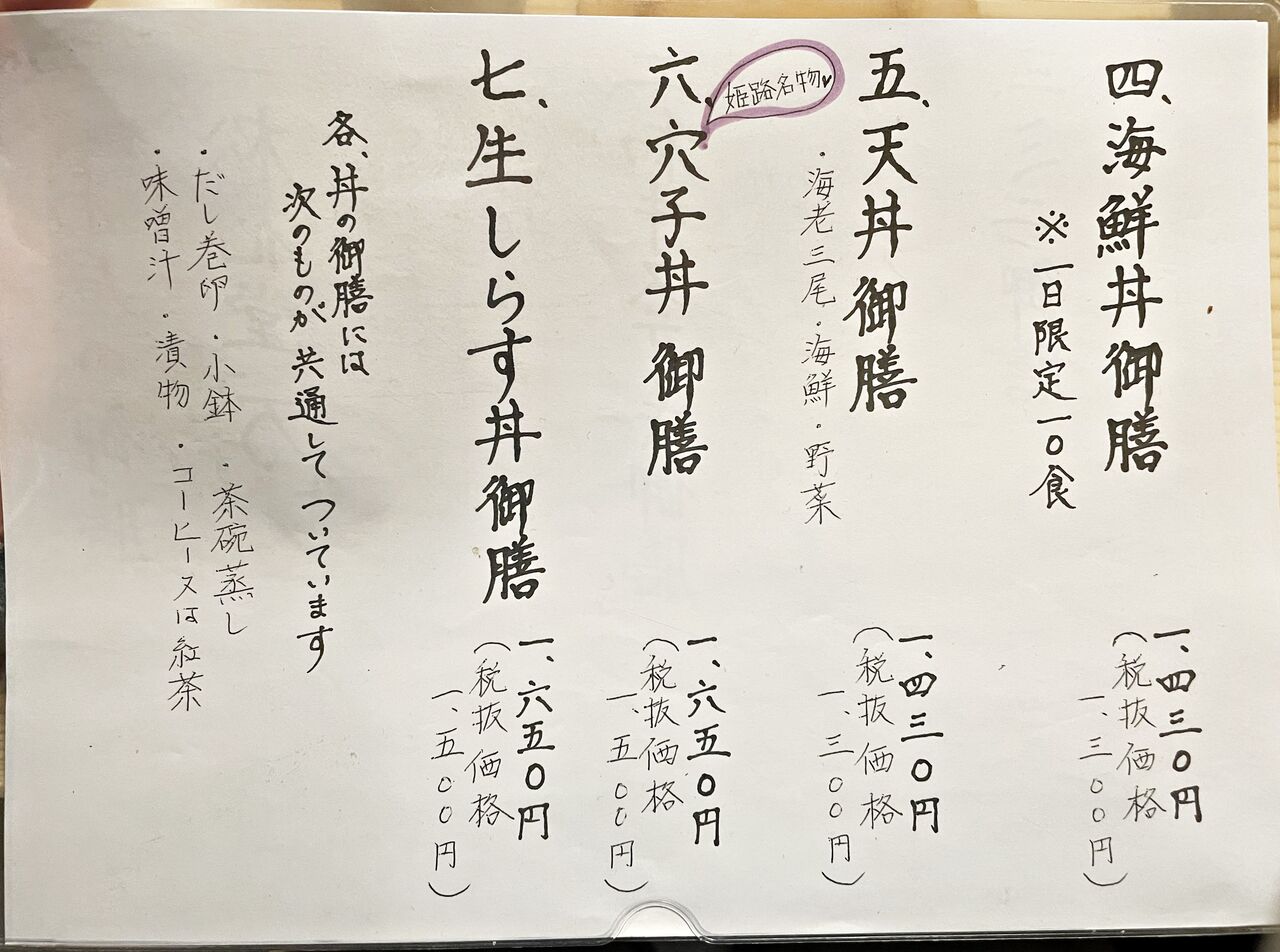 四、海鮮丼御膳
※一日限定一〇食
一、四三〇円
(税抜価格
一、三〇〇円)
五、天丼御膳
・海老三尾・海鮮・野菜
一、四三〇円
(税抜価格
一、三〇〇円)
姫路名物♥
六、穴子丼御膳
一、六五〇円
(税抜価格
一、五〇〇円)
七、生しらす丼御膳
一、六五〇円
(税抜価格
一、五〇〇円)
各、丼の御膳には
次のものが共通してついています
・だし巻卵・小鉢・茶碗蒸し
・味噌汁・漬物・コーヒー又は紅茶